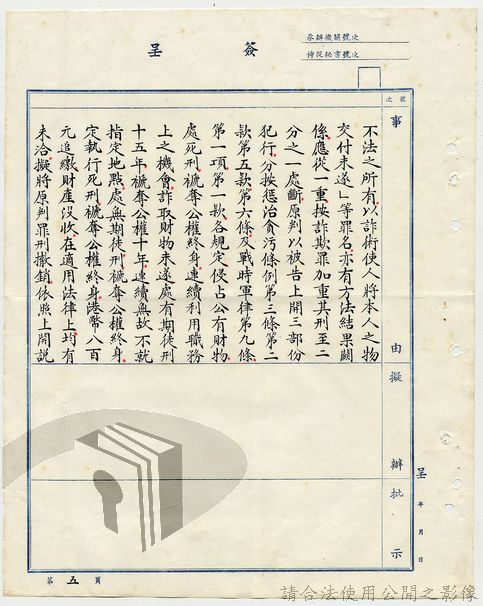 承辦機關號次
侍從秘書號次
簽呈
號次
事由
擬辦
批示
不法之所有以詐術使人將本人之物
交付未遂」等罪名亦有方法結果關
係應從一重按詐欺罪加重其刑至二
分之一處斷原判以被告上開三部份
犯行分按惩治貪污條例第三條第二
款第五款第六條及戰時軍律第九條
第一項第一款各規定侵占公有財物
處死刑褫奪公權終身連續利用職務
上之機會詐取財物未遂處有期徒刑
十五年褫奪公權十年連續無故不就
指定地點處無期徒刑褫奪公權終身
定執行死刑褫奪公權終身港幣八百
元追繳財產沒收在適用法律上均有
未洽擬將原判罪刑撤銷依照上開說
呈 年 月 日
第五頁
請合法使用公開之影像